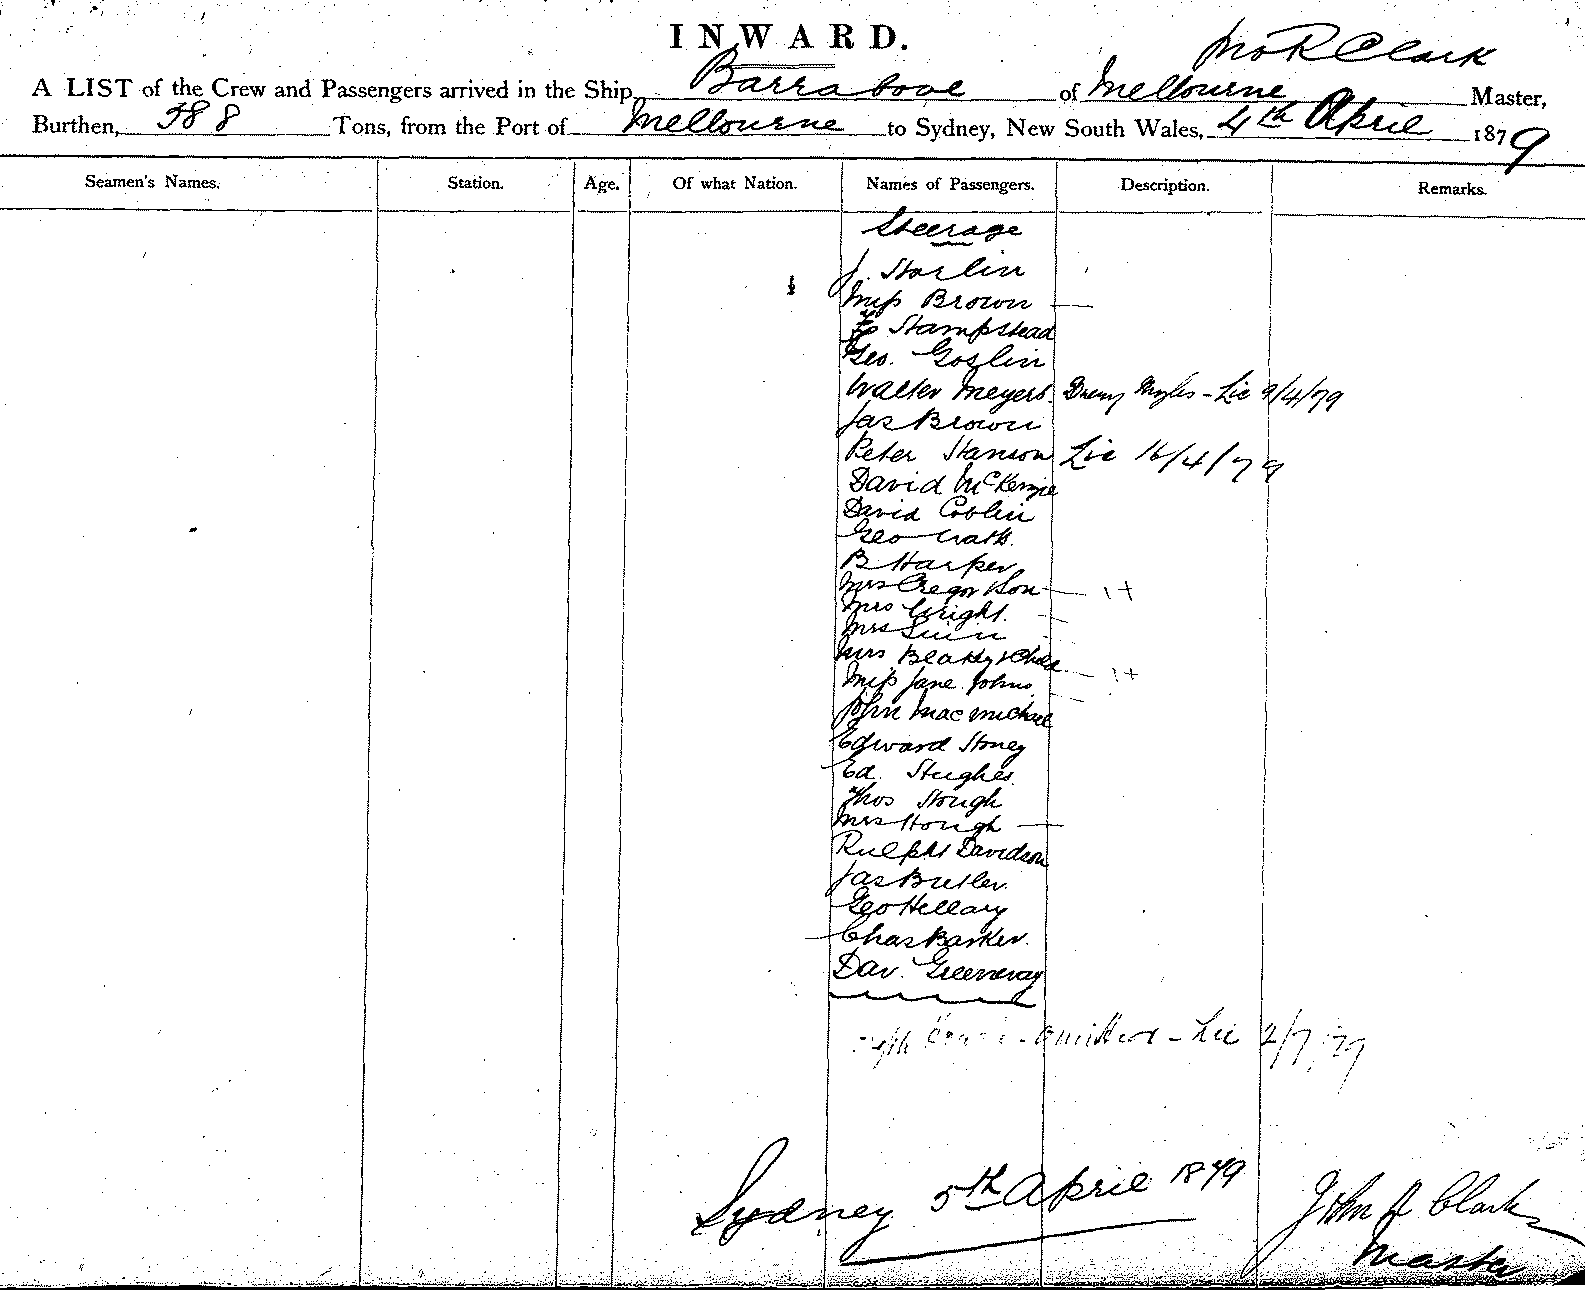 INWARD.
Jno R Clark
A LIST of the Crew and Passengers arrived in the Ship Barrabool of Melbourne Master,
Burthen, 588 Tons, from the Port of Melbourne to Sydney, New South Wales, 4th April 1879
Seamen's Names. Station. Age. Of what Nation. Names of Passengers. Description. Remarks.
Steerage
J. Starlin
Miss Brown
Stampstead
Geo. Goslin
Walter Meyers. Lic 9/4/79
Jas Brown
Peter Hanson Lic 16/4/79
David McKenzie
David Coblin
Geo
B Harper
Mrs Cregor & Son 1+
Mrs Wright
Mrs
Mrs Beatty & Child 1+
Miss Jane Johns
John Mac Michael
Edward Stoney
Ed. Hughes
Thos Hough
Mrs Hough
Ralph Davidson
Jas Butler
Geo Hellary
Chas Barker
Dav. Greenway
omitted - Lic 2/7/79
Sydney 5th April 1879
John R Clark
Master